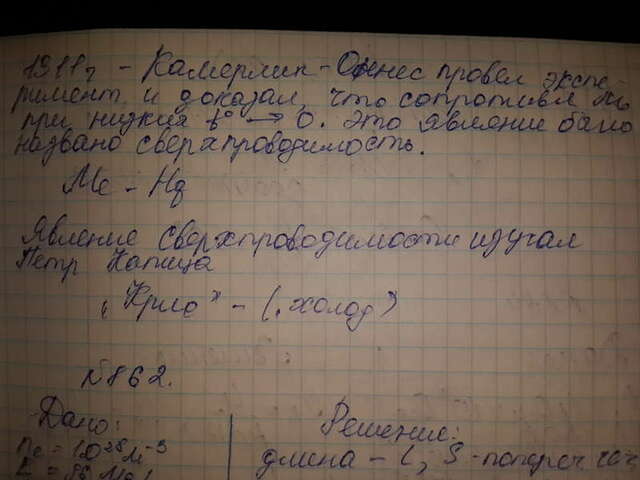 1911г - Камерлин-Оннес провел экспе-
римент и доказал, что сопротивл Ме
при низких t° → 0. Это явление было
названо сверхпроводимость.
Ме - Hg
Явление сверхпроводимости изучал
Петр Капица
"Крио" - (. холод)
№862.
Дано:
Решение:
nе = 10²⁸ м⁻³
длина - l, S - попереч